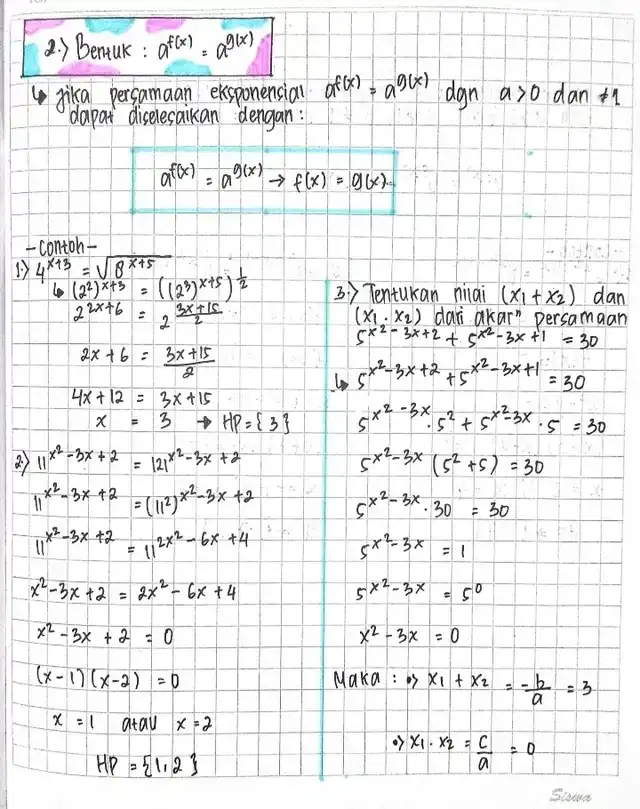 2.) Bentuk : a^f(x) = a^g(x)
↳ Jika persamaan eksponensial a^f(x) = a^g(x) dgn a>0 dan ≠1
dapat diselesaikan dengan:
a^f(x) = a^g(x) → f(x) = g(x).
-Contoh-
1.) 4^(x+3) = √(8^(x+5))
↳ (2²)^(x+3) = ((2³)^(x+5))^(1/2)
2^(2x+6) = 2^((3x+15)/2)
2x + 6 = (3x+15)/2
4x + 12 = 3x+15
x = 3 → HP = {3}
2.) 11^(x²-3x+2) = 121^(x²-3x+2)
11^(x²-3x+2) = (11²)^(x²-3x+2)
11^(x²-3x+2) = 11^(2x²-6x+4)
x²-3x+2 = 2x²-6x+4
x²-3x+2 = 0
(x-1)(x-2) = 0
x = 1 atau x = 2
HP = {1,2}
3.) Tentukan nilai (x₁+x₂) dan
(x₁.x₂) dari akar" persamaan
5^(x²-3x+2) + 5^(x²-3x+1) = 30
↳ 5^(x²-3x+2) + 5^(x²-3x+1) = 30
5^(x²-3x).5² + 5^(x²-3x).5 = 30
5^(x²-3x) (5²+5) = 30
5^(x²-3x).30 = 30
5^(x²-3x) = 1
5^(x²-3x) = 5⁰
x²-3x = 0
Maka : •> x₁ + x₂ = -b/a = 3
•> x₁ . x₂ = c/a = 0
Siswa